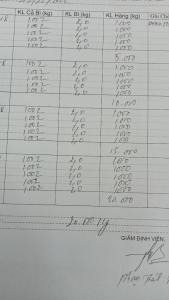 KL Cả Bì (kg) KL Bì (kg) KL Hàng (kg) Ghi Chú
1002 2,0 1000
1002 2,0 1000
1002 2,0 1000
1002 2,0 1000
1002 2,0 1000
5.000
1002 2,0 1000
1002 2,0 1000
1002 2,0 1000
1002 2,0 1000
1002 2,0 1000
10.000
1002 2,0 1000
1002 2,0 1000
1002 2,0 1000
1002 2,0 1000
1002 2,0 1000
15.000
1002 2,0 1000
1002 2,0 1000
1002 2,0 1000
1002 2,0 1000
1002 2,0 1000
20.000
20.000 kg
GIÁM ĐỊNH VIÊN